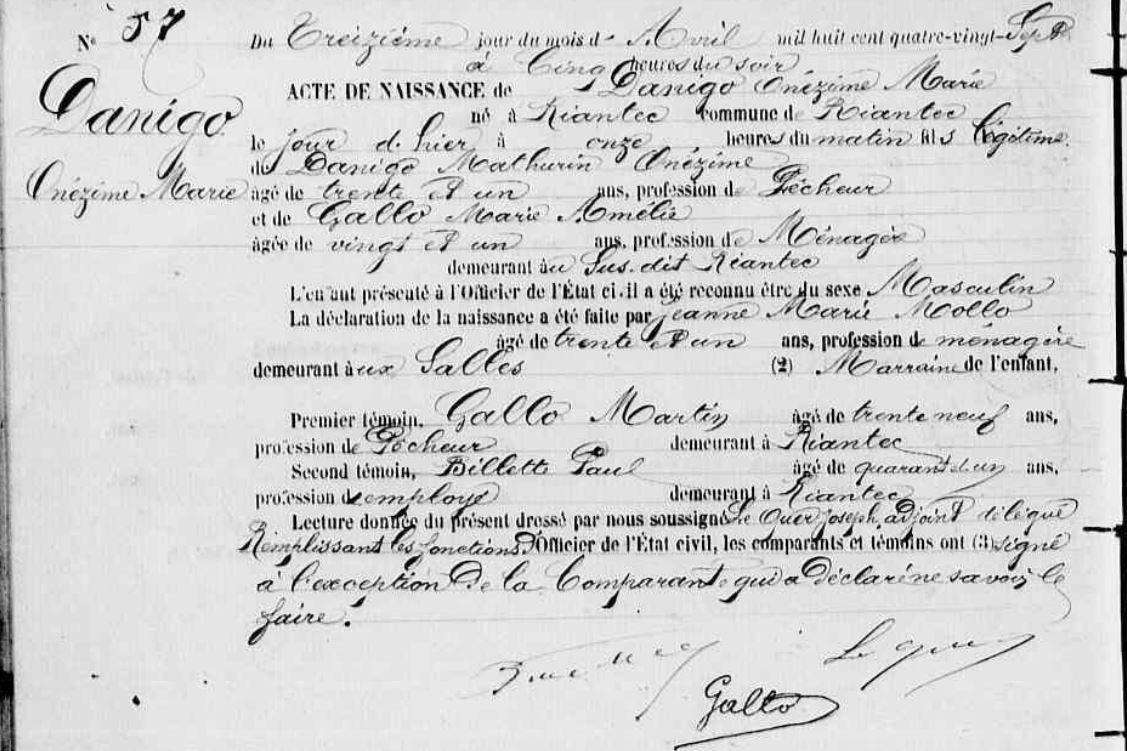 N° 57
Danigo
Onézime Marie
Du Treizième jour du mois d' Avril mil huit cent quatre-vingt-Sept
à Cinq heures du soir
ACTE DE NAISSANCE de Danigo Onézime Marie
né à Riantec commune de Riantec
le jour d'hier à onze heures du matin fils légitime
de Danigo Mathurin Onézime
âgé de trente et un ans, profession de Pêcheur
et de Gallo Marie Amélie
âgée de vingt et un ans, profession de Ménagère
demeurant au Sus-dit Riantec
L'enfant présenté à l'Officier de l'État civil a été reconnu être du sexe Masculin
La déclaration de la naissance a été faite par Jeanne Marie Mollo
âgé de trente et un ans, profession de ménagère
demeurant aux Salles (2) Marraine de l'enfant.
Premier témoin, Gallo Martin âgé de trente neuf ans,
profession de Pêcheur demeurant à Riantec
Second témoin, Billette Paul âgé de quarant et un ans,
profession d'employé demeurant à Riantec
Lecture donnée du présent dressé par nous soussigné Le Quer Joseph, adjoint délégué
Remplissant les fonctions d'Officier de l'État civil, les comparants et témoins ont (3) signé
à l'exception de la Comparante qui a déclaré ne savoir le
faire.
Le Quer
Gallo